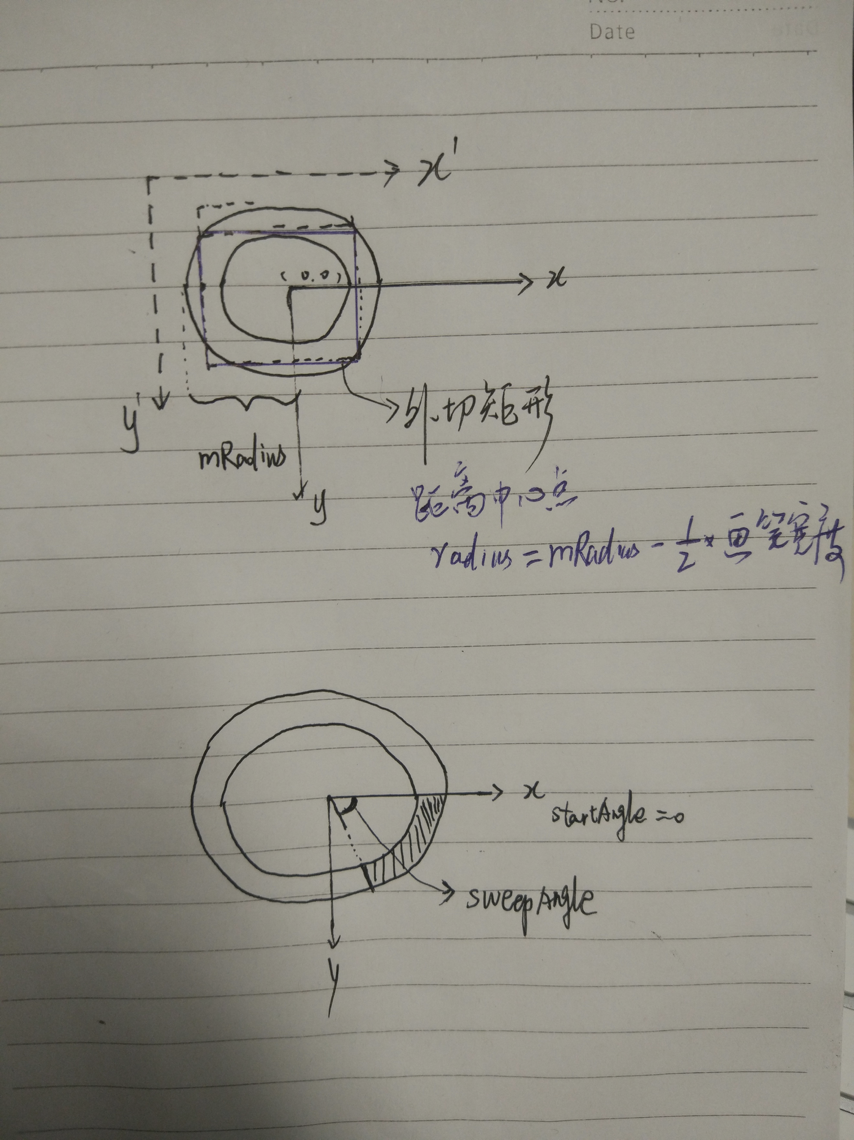 Date
x'
(0,0)
x
y'
外切矩形
mRadius
y
距离中心点
radius = mRadius - 1/2 * 画笔宽度
x
startAngle = 0
sweepAngle
y